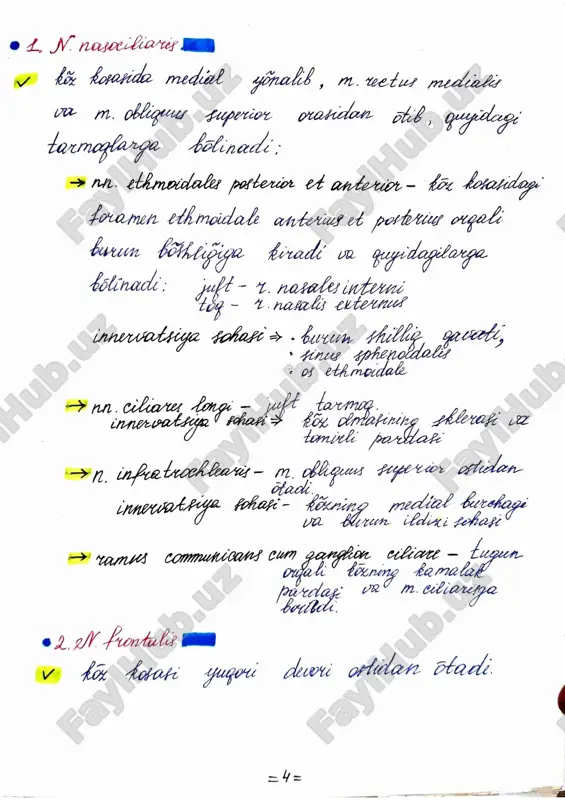 1. N. nasociliaris.
kōz kosasida medial yōnalib, m. rectus medialis
va m. obliquus superior orasidan ōtib, quyidagi
tarmoqlarga bōlinadi:
→ nn. ethmoidales posterior et anterior – kōz kosasidagi
foramen ethmoidale anterius et posterius orqali
burun bōshlig̃iga kiradi va quyidagilarga
bōlinadi: juft – r. nasales interni
toq – r. nasalis externus
innervatsiya sohasi ⇒ • burun shilliq qavati,
• sinus sphenoidalis
• os ethmoidale
→ nn. ciliares longi – juft tarmoq
innervatsiya sohasi ⇒ kōz olmasining sklerasi va
tomirli pardasi
→ n. infratrochlearis – m. obliquus superior ostidan
ōtadi.
innervatsiya sohasi – kōzning medial burchagi
va burun ildizi sohasi
→ ramus communicans cum ganglion ciliare – tugun
orqali kōzning kamalak
pardasi va m. ciliarisga
boradi.
2. N. frontalis
kōz kosasi yuqori devori ostidan ōtadi.
=4=
FayllHub.uz
FayllHub.uz
FayllHub.uz
FayllHub.uz
FayllHub.uz
FayllHub.uz
FayllHub.uz
FayllHub.uz